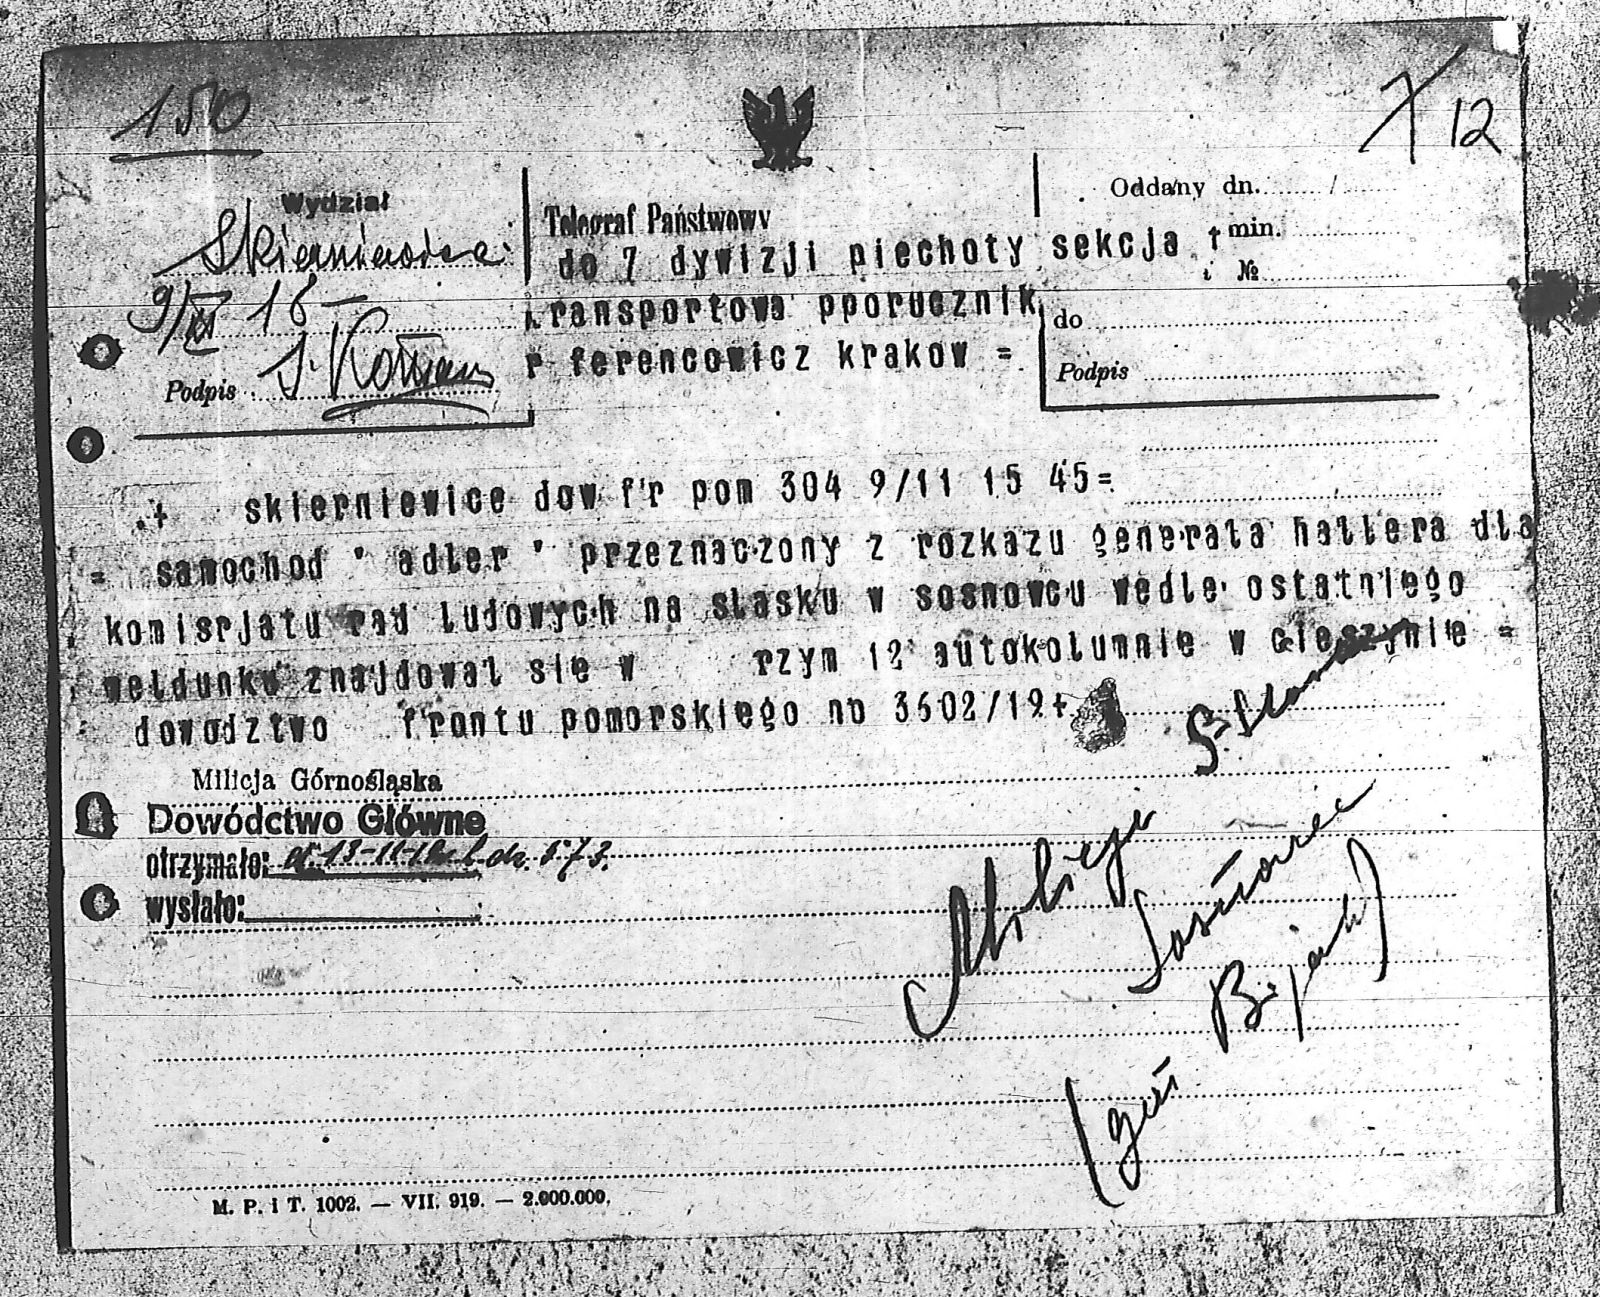 150
12
Wydział
Skierniewice
9/XI 18
Podpis
Telegraf Państwowy
do 7 dywizji piechoty sekcja t
ransportowa pporucznik
r ferencowicz krakow =
Oddany dn.
min.
№
do
Podpis
+ skierniewice dow fr pom 304 9/11 15 45=
= samochod " adler " przeznaczony z rozkazu generała hallera dla
komisrjatu rad ludowych na slasku w sosnowcu wedle ostatniego
meldunku znajdował sie w rzym 12 autokolumnie w cieszynie =
dowodztwo frontu pomorskiego no 3602/19+
Milicja Górnośląska
Dowództwo Główne
otrzymało: 13-11-19 L. dz. 573.
wysłało:
M. P. i T. 1002. — VII. 919. — 2.000.000.